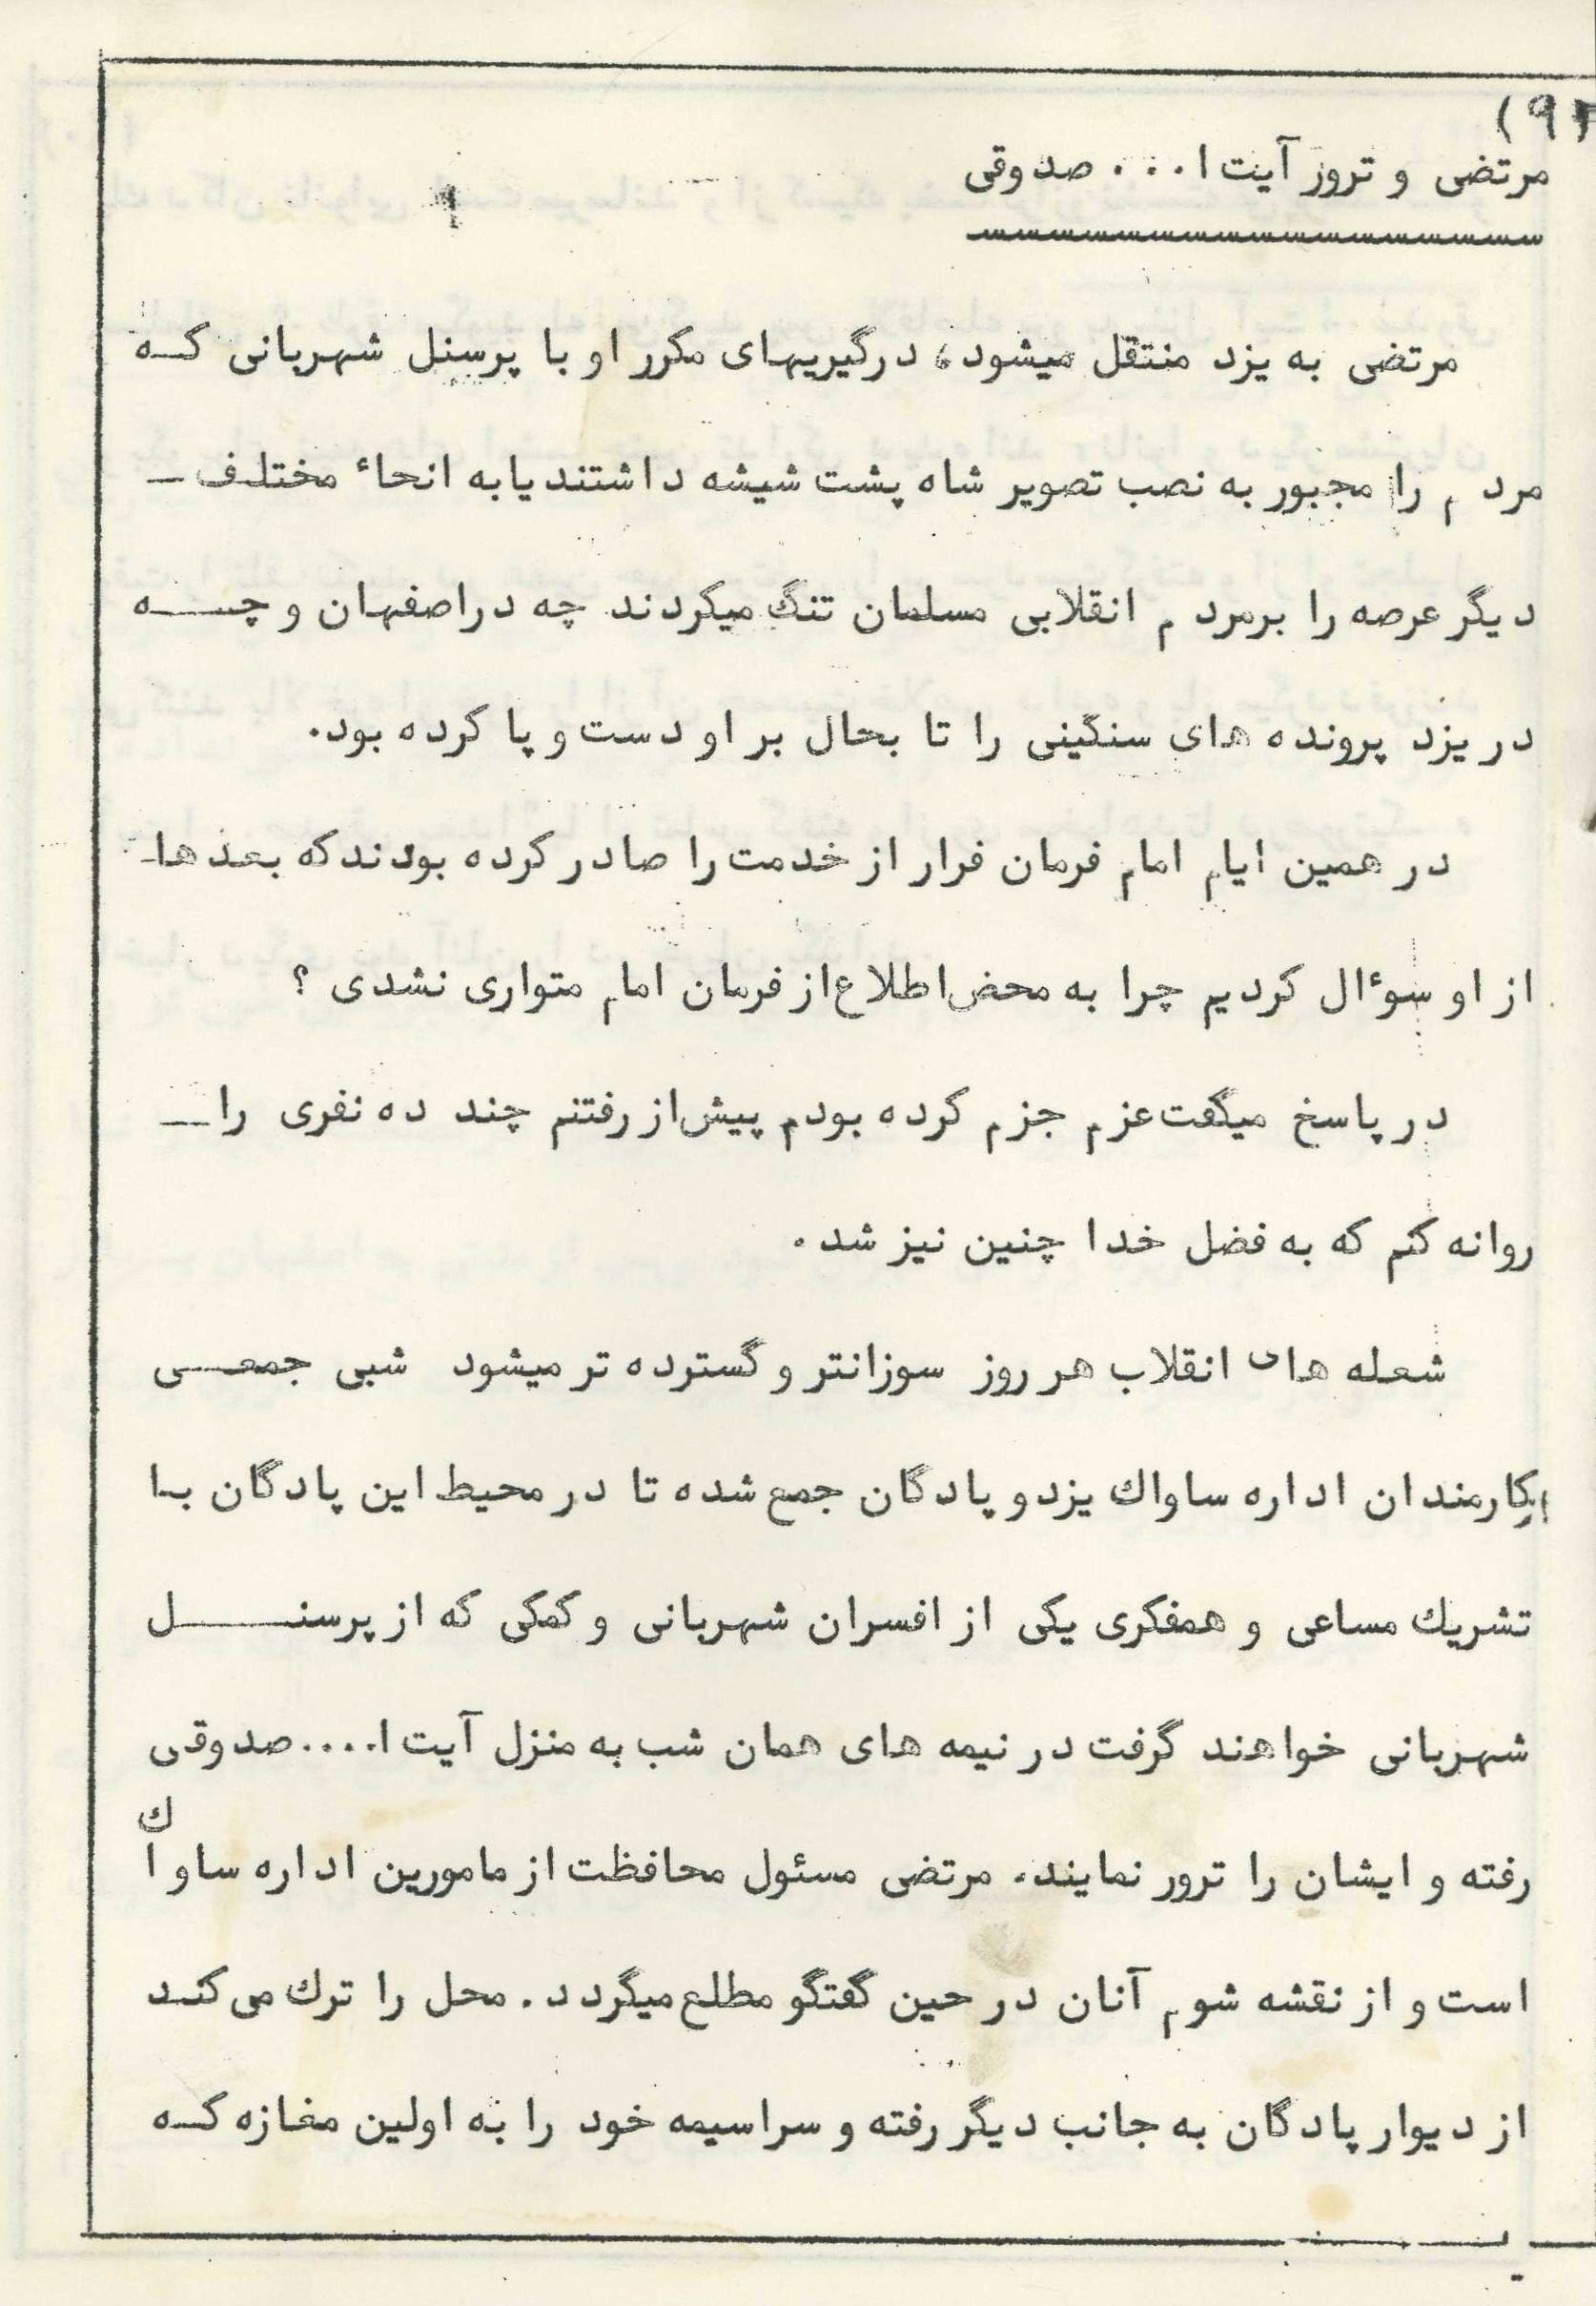 (۹۲
مرتضی و ترور آیت ا... صدوقی
مرتضی به یزد منتقل میشود، درگیریهای مکرر او با پرسنل شهربانی که
مردم را مجبور به نصب تصویر شاه پشت شیشه داشتند یا به انحاء مختلف ـ
دیگر عرصه را بر مردم انقلابی مسلمان تنگ میکردند چه در اصفهان و چه
در یزد پرونده های سنگینی را تا بحال بر او دست و پا کرده بود.
در همین ایام امام فرمان فرار از خدمت را صادر کرده بودند که بعدها
از او سوءال کردیم چرا به محض اطلاع از فرمان امام متواری نشدی ؟
در پاسخ میگفت عزم جزم کرده بودم پیش از رفتنم چند ده نفری را ـ
روانه کنم که به فضل خدا چنین نیز شد.
شعله های انقلاب هر روز سوزانتر و گسترده تر میشود شبی جمعی
از کارمندان اداره ساواك یزد و پادگان جمع شده تا در محیط این پادگان با
تشریك مساعی و همفکری یکی از افسران شهربانی و کمکی که از پرسنل
شهربانی خواهند گرفت در نیمه های همان شب به منزل آیت ا.... صدوقی
رفته و ایشان را ترور نمایند. مرتضی مسئول محافظت از مامورین اداره ساواك
است و از نقشه شوم آنان در حین گفتگو مطلع میگردد. محل را ترك می کند
از دیوار پادگان به جانب دیگر رفته و سراسیمه خود را به اولین مغازه که